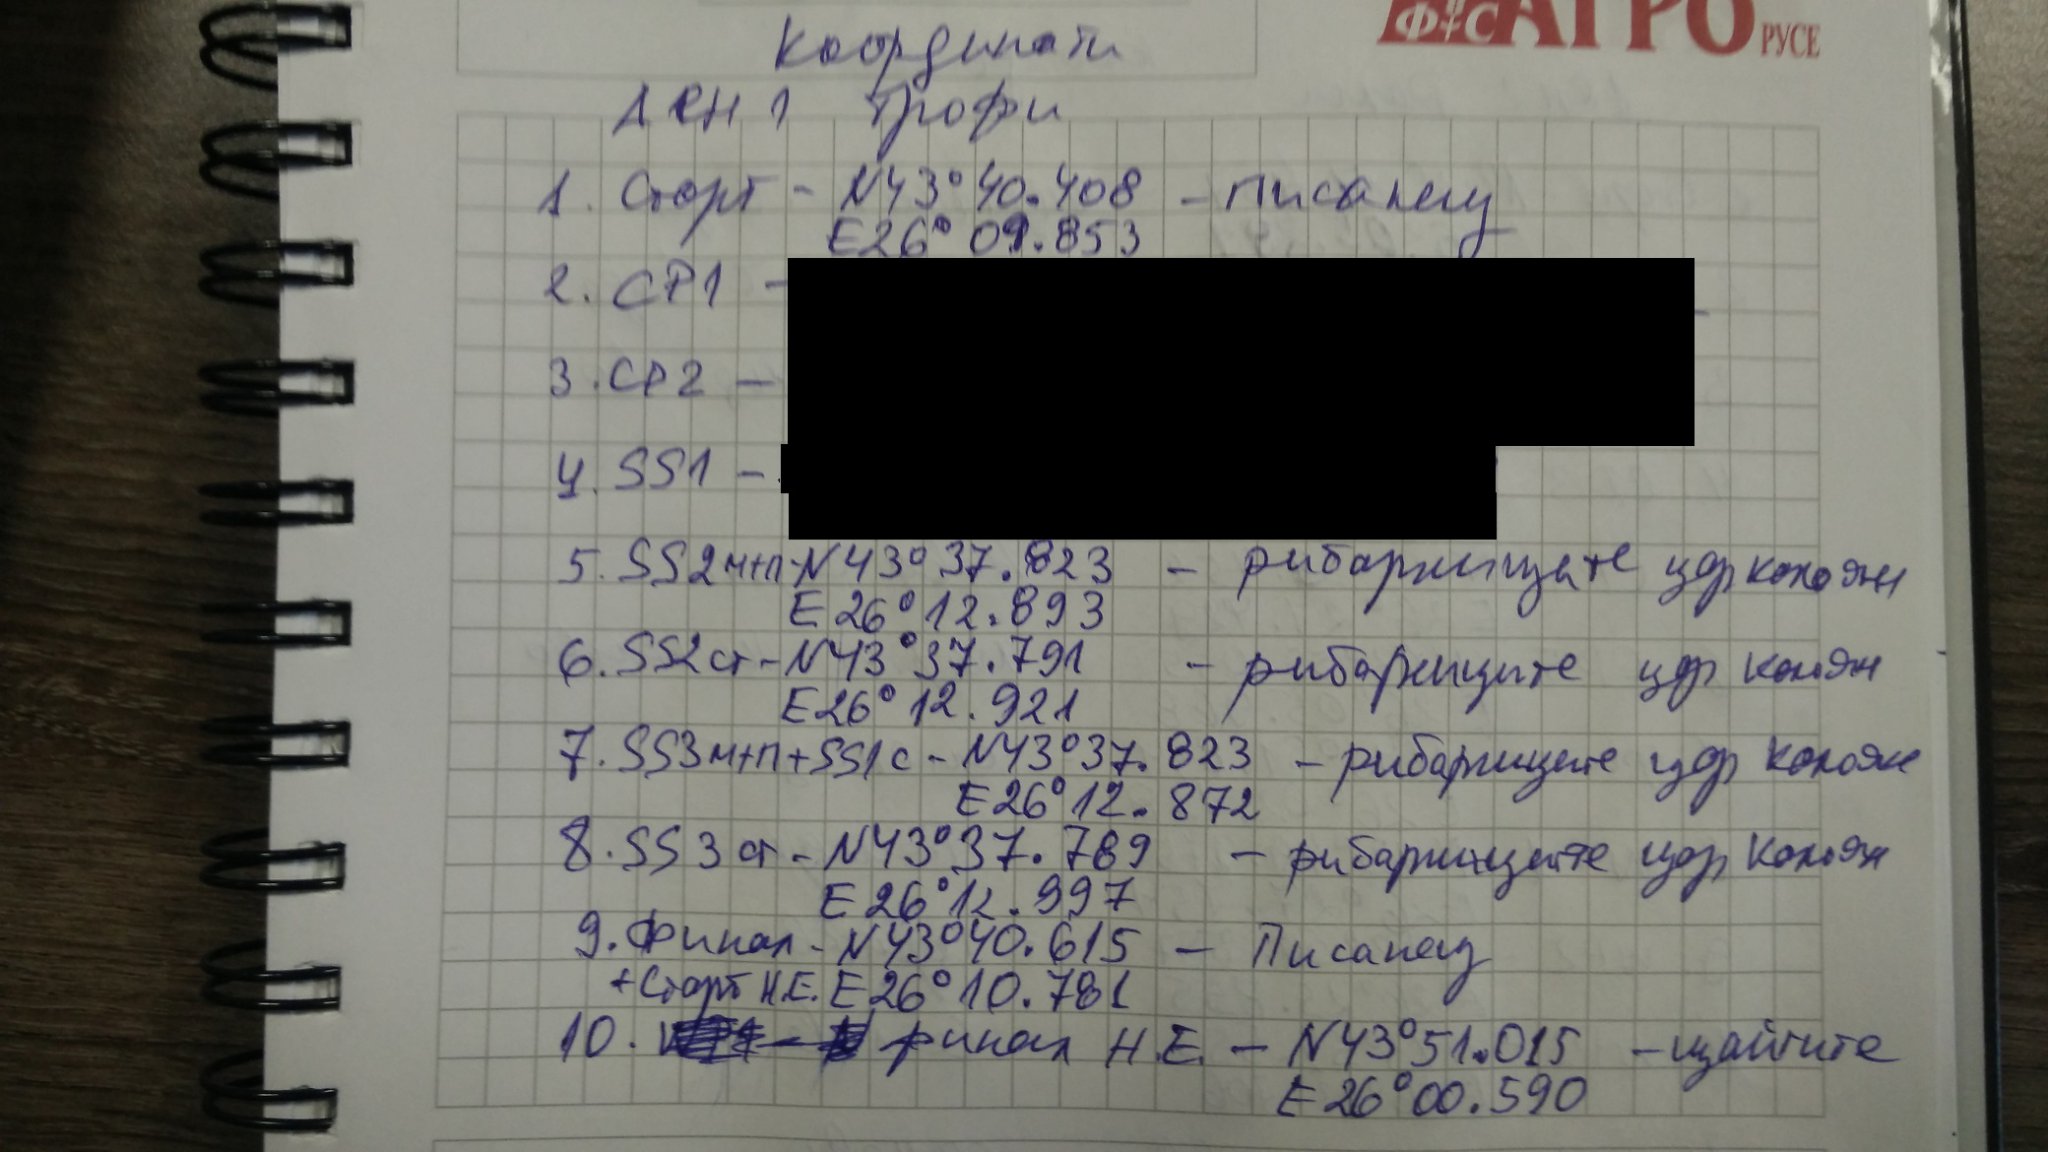 ФКС АГРО РУСЕ
Координати
ДЕН 1 Трофи
1. Старт - N43°40.408 - Писанец
E26° 09.853
2. CP1 -
3. CP2 -
4. SS1 -
5. SS2 м+п - N43°37.823 - рибарниците цар Колоян
E26°12.893
6. SS2 ст - N43°37.791 - рибарниците цар Колоян
E26°12.921
7. SS3 м+п + SS1 с - N43°37.823 - рибарниците цар Колоян
E26°12.872
8. SS3 ст - N43°37.789 - рибарниците цар Колоян
E26°12.997
9. Финал - N43°40.615 - Писанец
+ Старт Н.Е. E26°10.781
10. финал Н.Е. - N43°51.015 - щайгите
E26°00.590